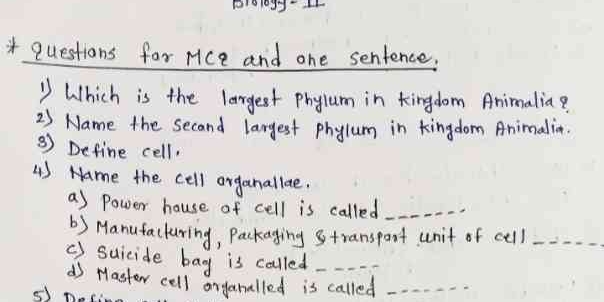 Biology - II
* Questions for MCQ and one sentence.
1) Which is the largest Phylum in kingdom Animalia?
2) Name the second largest phylum in kingdom Animalia.
3) Define cell.
4) Name the cell organallae.
a) Power house of cell is called -------
b) Manufacturing, Packaging & transport unit of cell -----
c) Suicide bag is called -----
d) Master cell organalled is called -------
5) Define